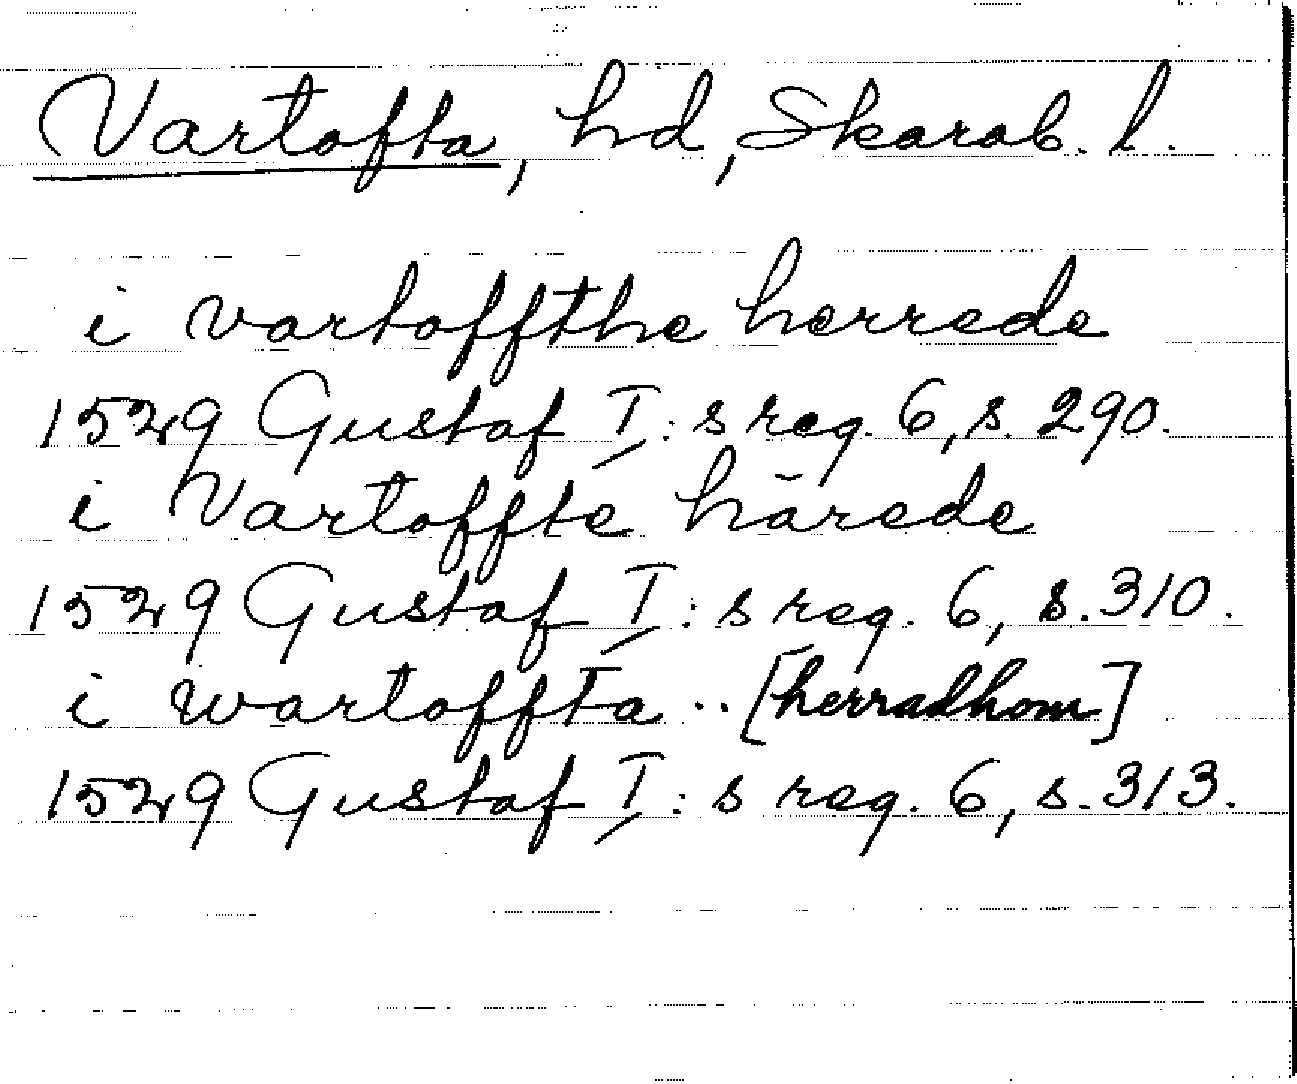 Vartofta, hd, Skarab. l.
i vartoffthe herrede
1529 Gustaf I: s reg. 6, s. 290.
i Vartoffte härede
1529 Gustaf I: s reg. 6, s. 310.
i wartoffta .. [herradhom]
1529 Gustaf I: s reg. 6, s. 313.